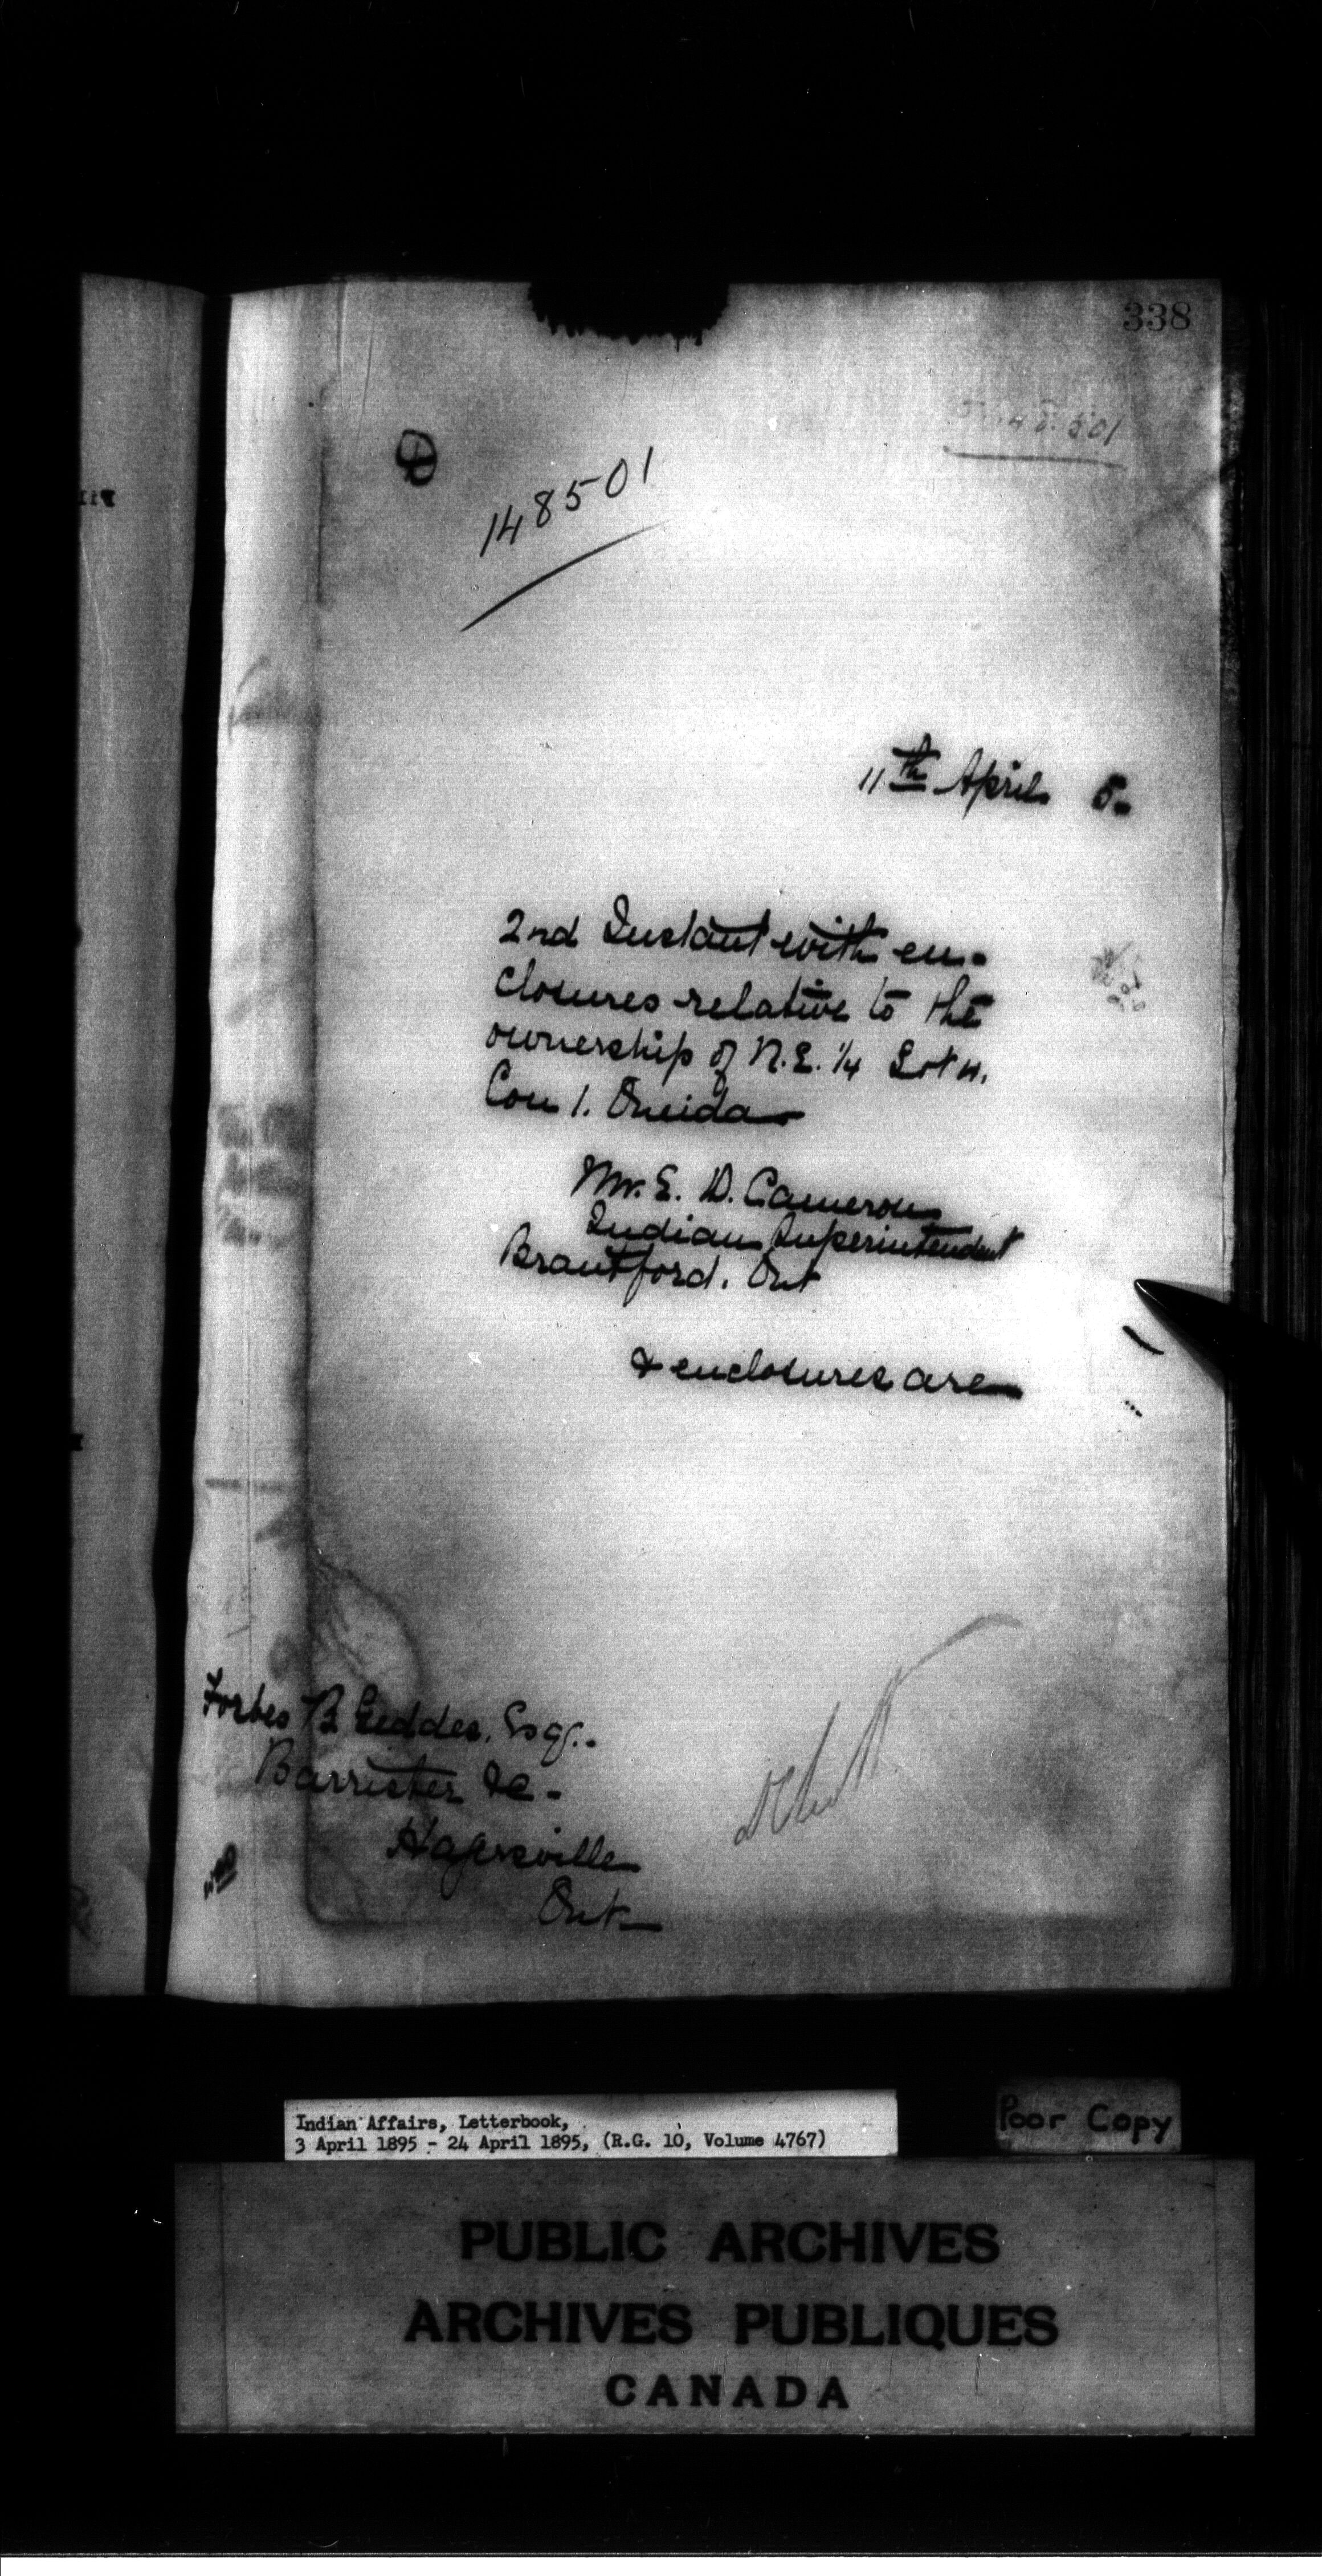 338
148501
11th April 5.
2nd Instant with en-
closures relative to the
ownership of N.E. 1/4 Lot 11.
Con 1. Oneida
Mr. E. D. Cameron
Indian Superintendent
Brantford. Ont
& enclosures are
Forbes B Geddes, Esq.
Barrister &c.
Hagersville
Ont
Indian Affairs, Letterbook,
3 April 1895 - 24 April 1895, (R.G. 10, Volume 4767)
Poor Copy
PUBLIC ARCHIVES
ARCHIVES PUBLIQUES
CANADA